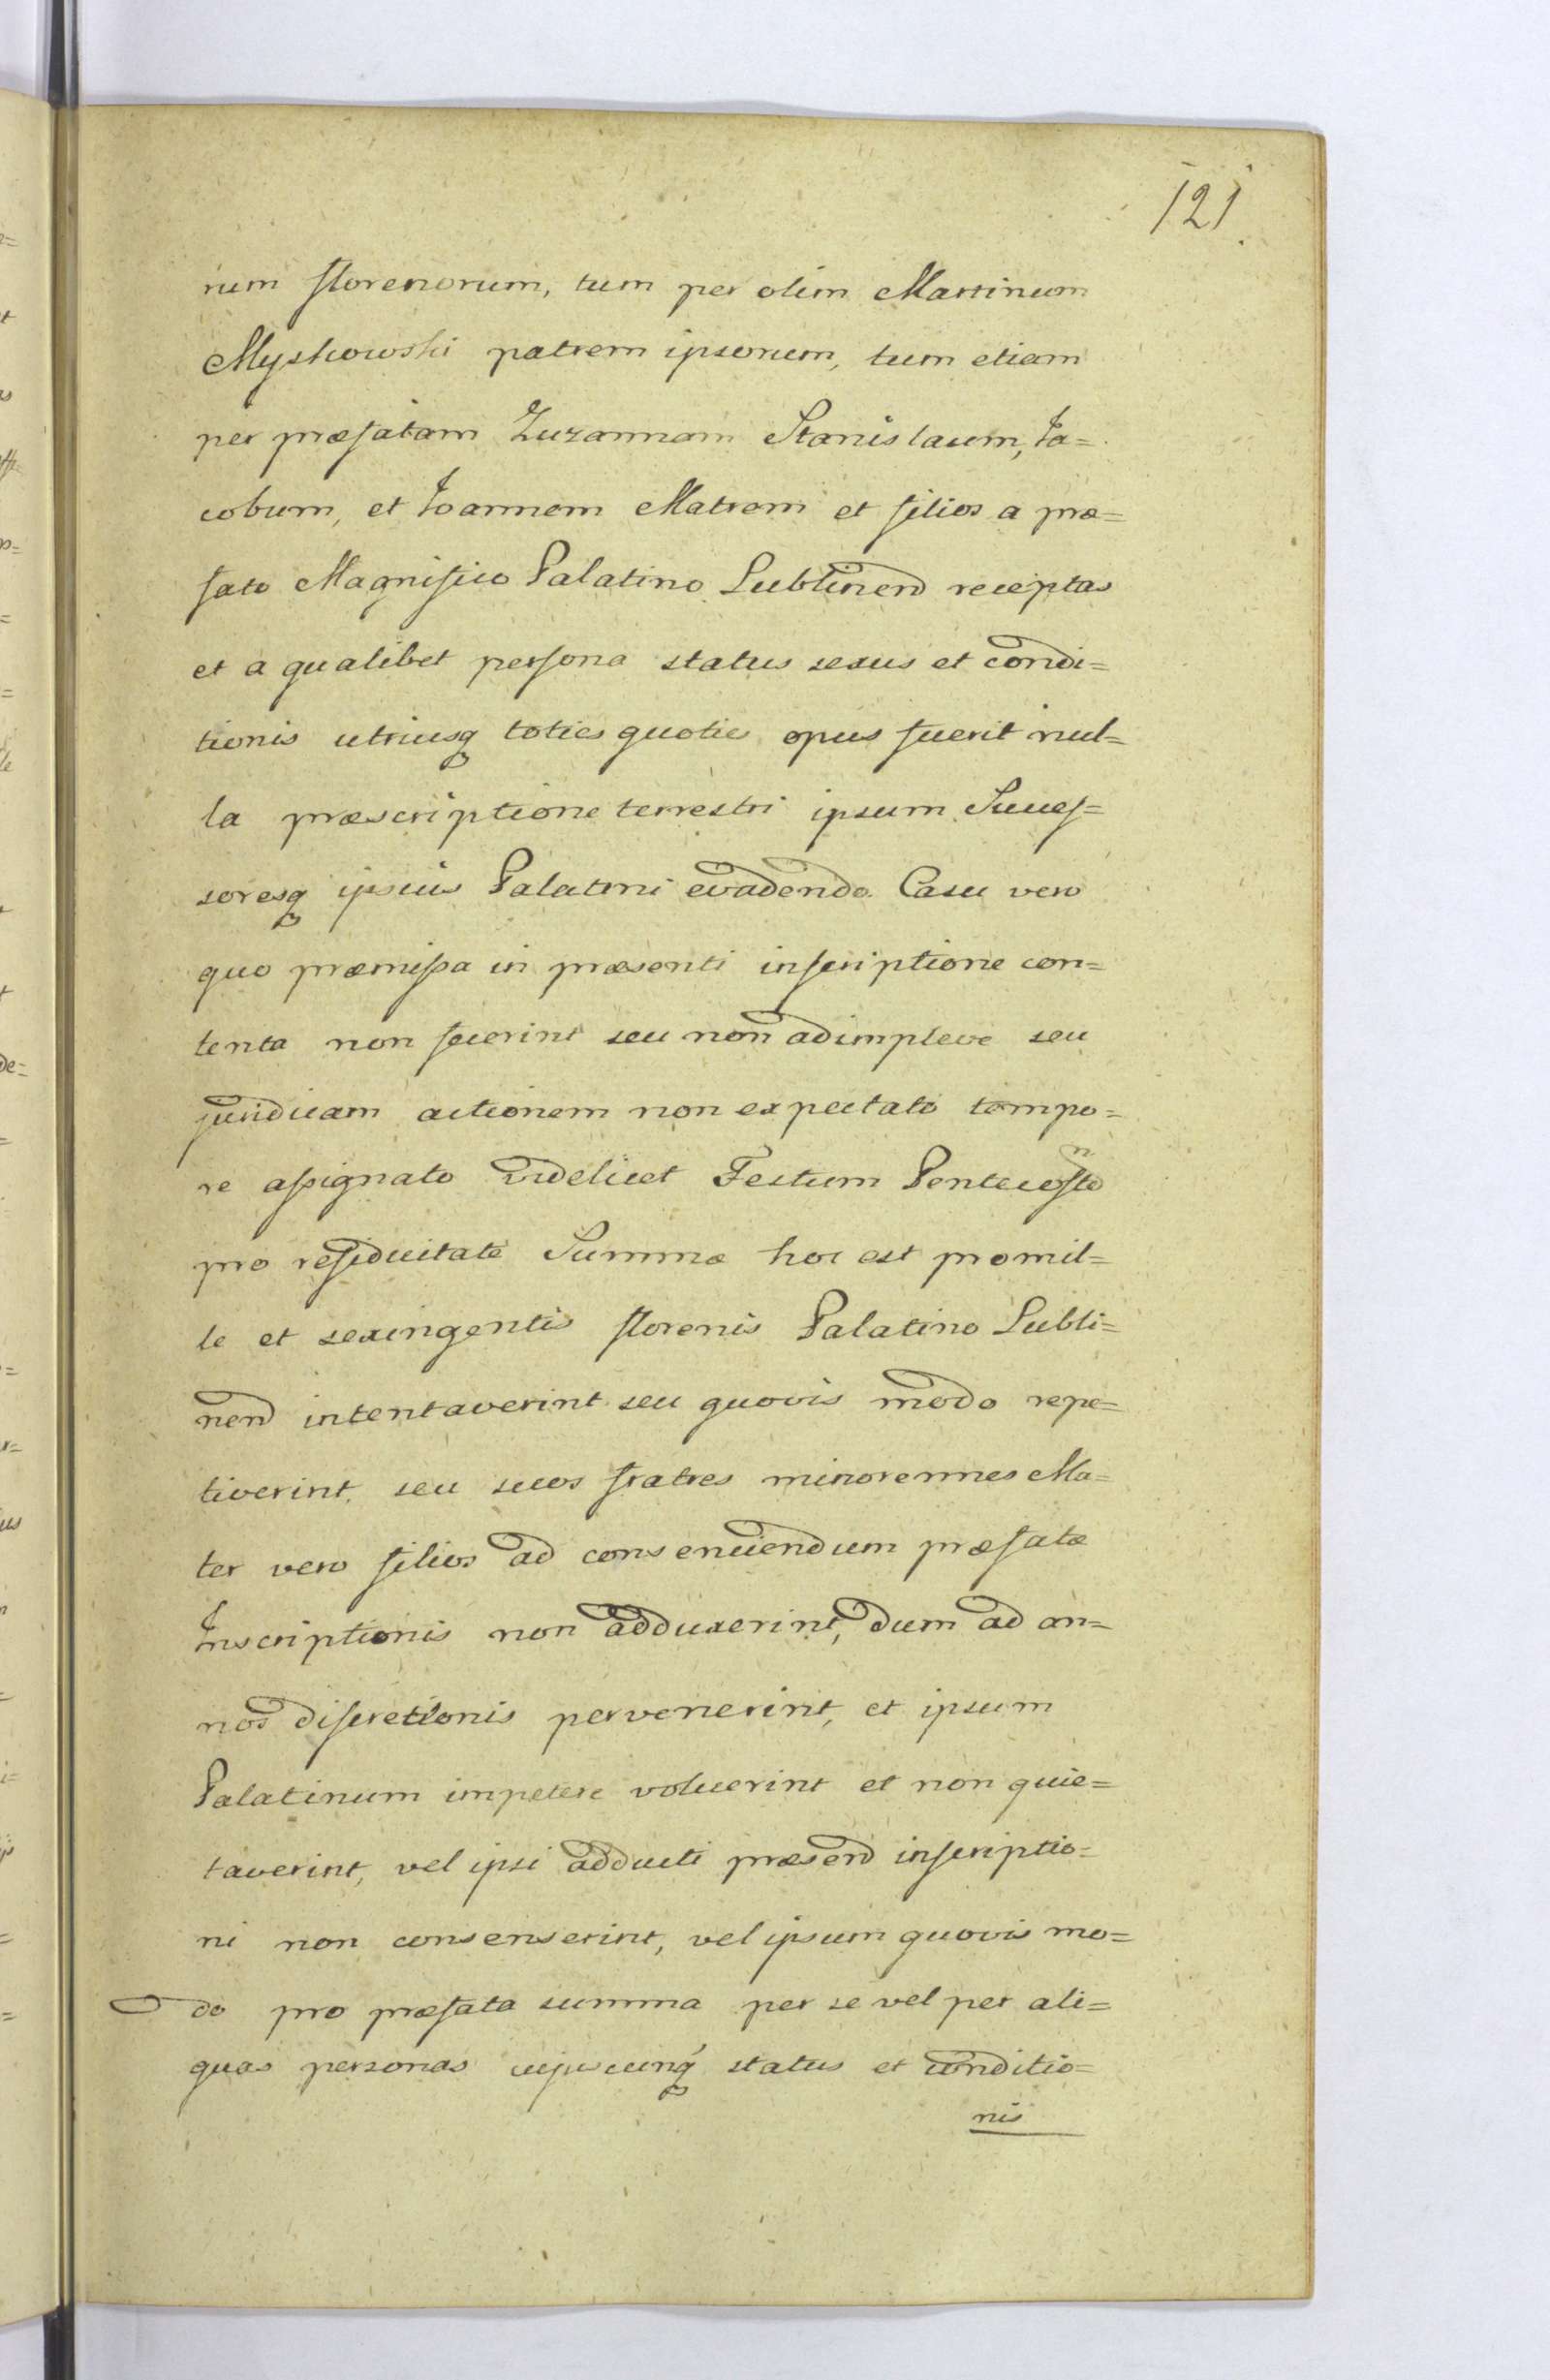 121.
rum florenorum, tum per olim Martinum
Myskowski patrem ipsorum, tum etiam
per præfatam Zuzannam Stanislaum, Ja=
cobum, et Joannem Matrem et filios a præ=
fato Magnifico Palatino Lublinen receptas
et a qualibet persona status sexus et condi=
tionis utriusq toties quoties opus fuerit nul=
la præscriptione terrestri ipsum Succes=
soresq ipsius Palatini evadendo. Casu vero
quo præmissa in præsenti inscriptione con=
tenta non fecerint seu non adimpleve seu
juridicam actionem non expectato tempo=
re assignato videlicet Festum Pentecosten
pro residuitate Summæ hoc est pro mil=
le et sexingentis florenis Palatino Lubli=
nen intentaverint seu quovis modo repe=
tiverint, seu suos fratres minorennes Ma=
ter vero filios ad consenciendum præfatæ
Inscriptionis non adduxerint, dum ad an=
nos discretionis pervenerint, et ipsum
Palatinum impetere voluerint et non quie=
taverint, vel ipsi adducti præsen inscriptio=
ni non consenserint, vel ipsum quovis mo=
do pro præfata summa per se vel per ali=
quas personas cujuscunq status et conditio=
nis